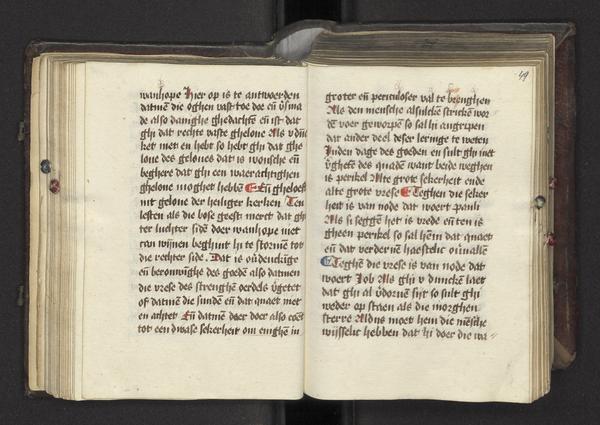 wanhope Hier op is te antwoerden
datmē die oghen vast toe doe eñ v̄sma
de also danighe ghedachtē eñ ist dat
ghi dat rechte vaste ghelone Als v dū
ket met en hebt so hebt ghi dat ghe
loue des geloues dat is wonsche eñ
beghere dat ghi een waerachtighen
ghelone moghet hebbē Eñ gheloeft
mit gelone der heiliger kerken Ten
lesten als die bose geest merct dat ghi
ter luchter sidē doer wanhope niet
en beghint hi te stormē tot
die rechter side. Dat is
eñ des goedē also datmen
die vrese des strenghē oerdels v̄getet
of datmē die sundē eñ dat quaet niet
en achtet Eñ datmē doer also
tot een dwase sekerheit om enighē in
49
groter eñ periculoser val te brenghen
Als den mensche alsulckē strickē wor
dē voer geworpē so sal hi angripen
dat ander deel deser leringe te weten
Inden dage des goeden en sult ghi niet
v̄ghetē des quadē want beide weghen
is perikel Alte grote sekerheit ende
alte grote vrese Teghen die seker
heit is van node dat woert pauli
Als si seggē het is vrede eñ ten is
gheen perikel so sal hem dat quaet
eñ dat verderuē haestelic ouuallē
Teghē die vrese is van node dat
woert Job Als ghi v dunckē laet
dat ghi al v̄dornē sijt so sult ghi
weder op staen als die morghen
sterre Aldus moet hem die mēsche
wisselic hebben dat hi doer die wa-